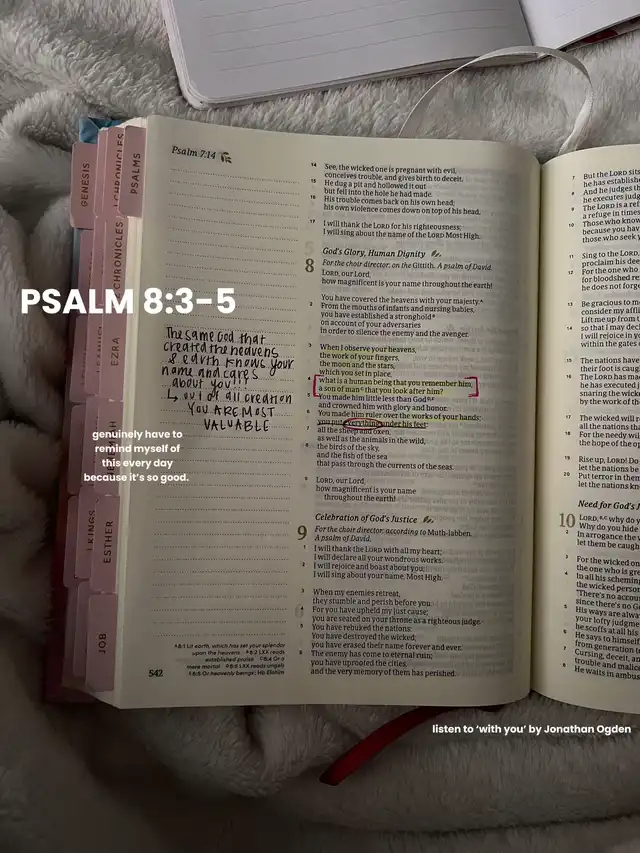 Psalm 7:14
GENESIS
PSALMS
CHRONICLES
EZRA
ESTHER
JOB
PSALM 8:3-5
The same God that
created the heavens
& earth knows your
name and cares
about you!!!
↳ out of all creation
YOU ARE MOST
VALUABLE
genuinely have to
remind myself of
this every day
because it's so good.
14 See, the wicked one is pregnant with evil,
conceives trouble, and gives birth to deceit.
15 He dug a pit and hollowed it out
but fell into the hole he had made.
16 His trouble comes back on his own head;
his own violence comes down on top of his head.
17 I will thank the LORD for his righteousness;
I will sing about the name of the LORD Most High.
God's Glory, Human Dignity
8 For the choir director: on the Gittith. A psalm of David.
LORD, our Lord,
how magnificent is your name throughout the earth!
You have covered the heavens with your majesty.
2 From the mouths of infants and nursing babies,
you have established a stronghold
on account of your adversaries
in order to silence the enemy and the avenger.
3 When I observe your heavens,
the work of your fingers,
the moon and the stars,
which you set in place,
4 what is a human being that you remember him,
a son of man that you look after him?
5 You made him little less than God
and crowned him with glory and honor.
6 You made him ruler over the works of your hands;
you put everything under his feet:
7 all the sheep and oxen,
as well as the animals in the wild,
8 the birds of the sky,
and the fish of the sea
that pass through the currents of the seas.
9 LORD, our Lord,
how magnificent is your name
throughout the earth!
Celebration of God's Justice
9 For the choir director: according to Muth-labben.
A psalm of David.
1 I will thank the LORD with all my heart;
I will declare all your wondrous works.
2 I will rejoice and boast about you;
I will sing about your name, Most High.
3 When my enemies retreat,
they stumble and perish before you.
4 For you have upheld my just cause;
you are seated on your throne as a righteous judge.
5 You have rebuked the nations:
You have destroyed the wicked;
you have erased their name forever and ever.
6 The enemy has come to eternal ruin;
you have uprooted the cities,
and the very memory of them has perished.
8:1 Lit earth, which has set your splendor
upon the heavens 8:2 LXX reads
established praise 8:4 Or a
mere mortal 8:5 LXX reads angels
8:5 Or heavenly beings; Hb Elohim
542
7 But the LORD sits
he has establishe
8 And he judges th
he executes judg
9 The LORD is a ref
a refuge in times
10 Those who know
because you hav
those who seek y
11 Sing to the LORD,
proclaim his dee
12 For the one who
for bloodshed re
he does not forge
13 Be gracious to m
consider my afflic
Lift me up from t
14 so that I may decl
within the gates
15 The nations have
their foot is caug
16 The LORD has ma
he has executed
snaring the wicke
by the work of th
17 The wicked will r
all the nations tha
18 For the needy wil
the hope of the op
19 Rise up, LORD! Do
let the nations be
20 Put terror in them
let the nations kn
Need for God's J
10 LORD, why do y
Why do you hide
2 In arrogance the w
let them be caught
3 For the wicked on
the one who is gre
4 In all his scheming
the wicked person
"There's no accou
since there's no G
5 His ways are alway
your lofty judgme
he scoffs at all his
6 He says to himself
from generation to
7 Cursing, deceit, an
trouble and malice
8 He waits in ambus
listen to 'with you' by Jonathan Ogden